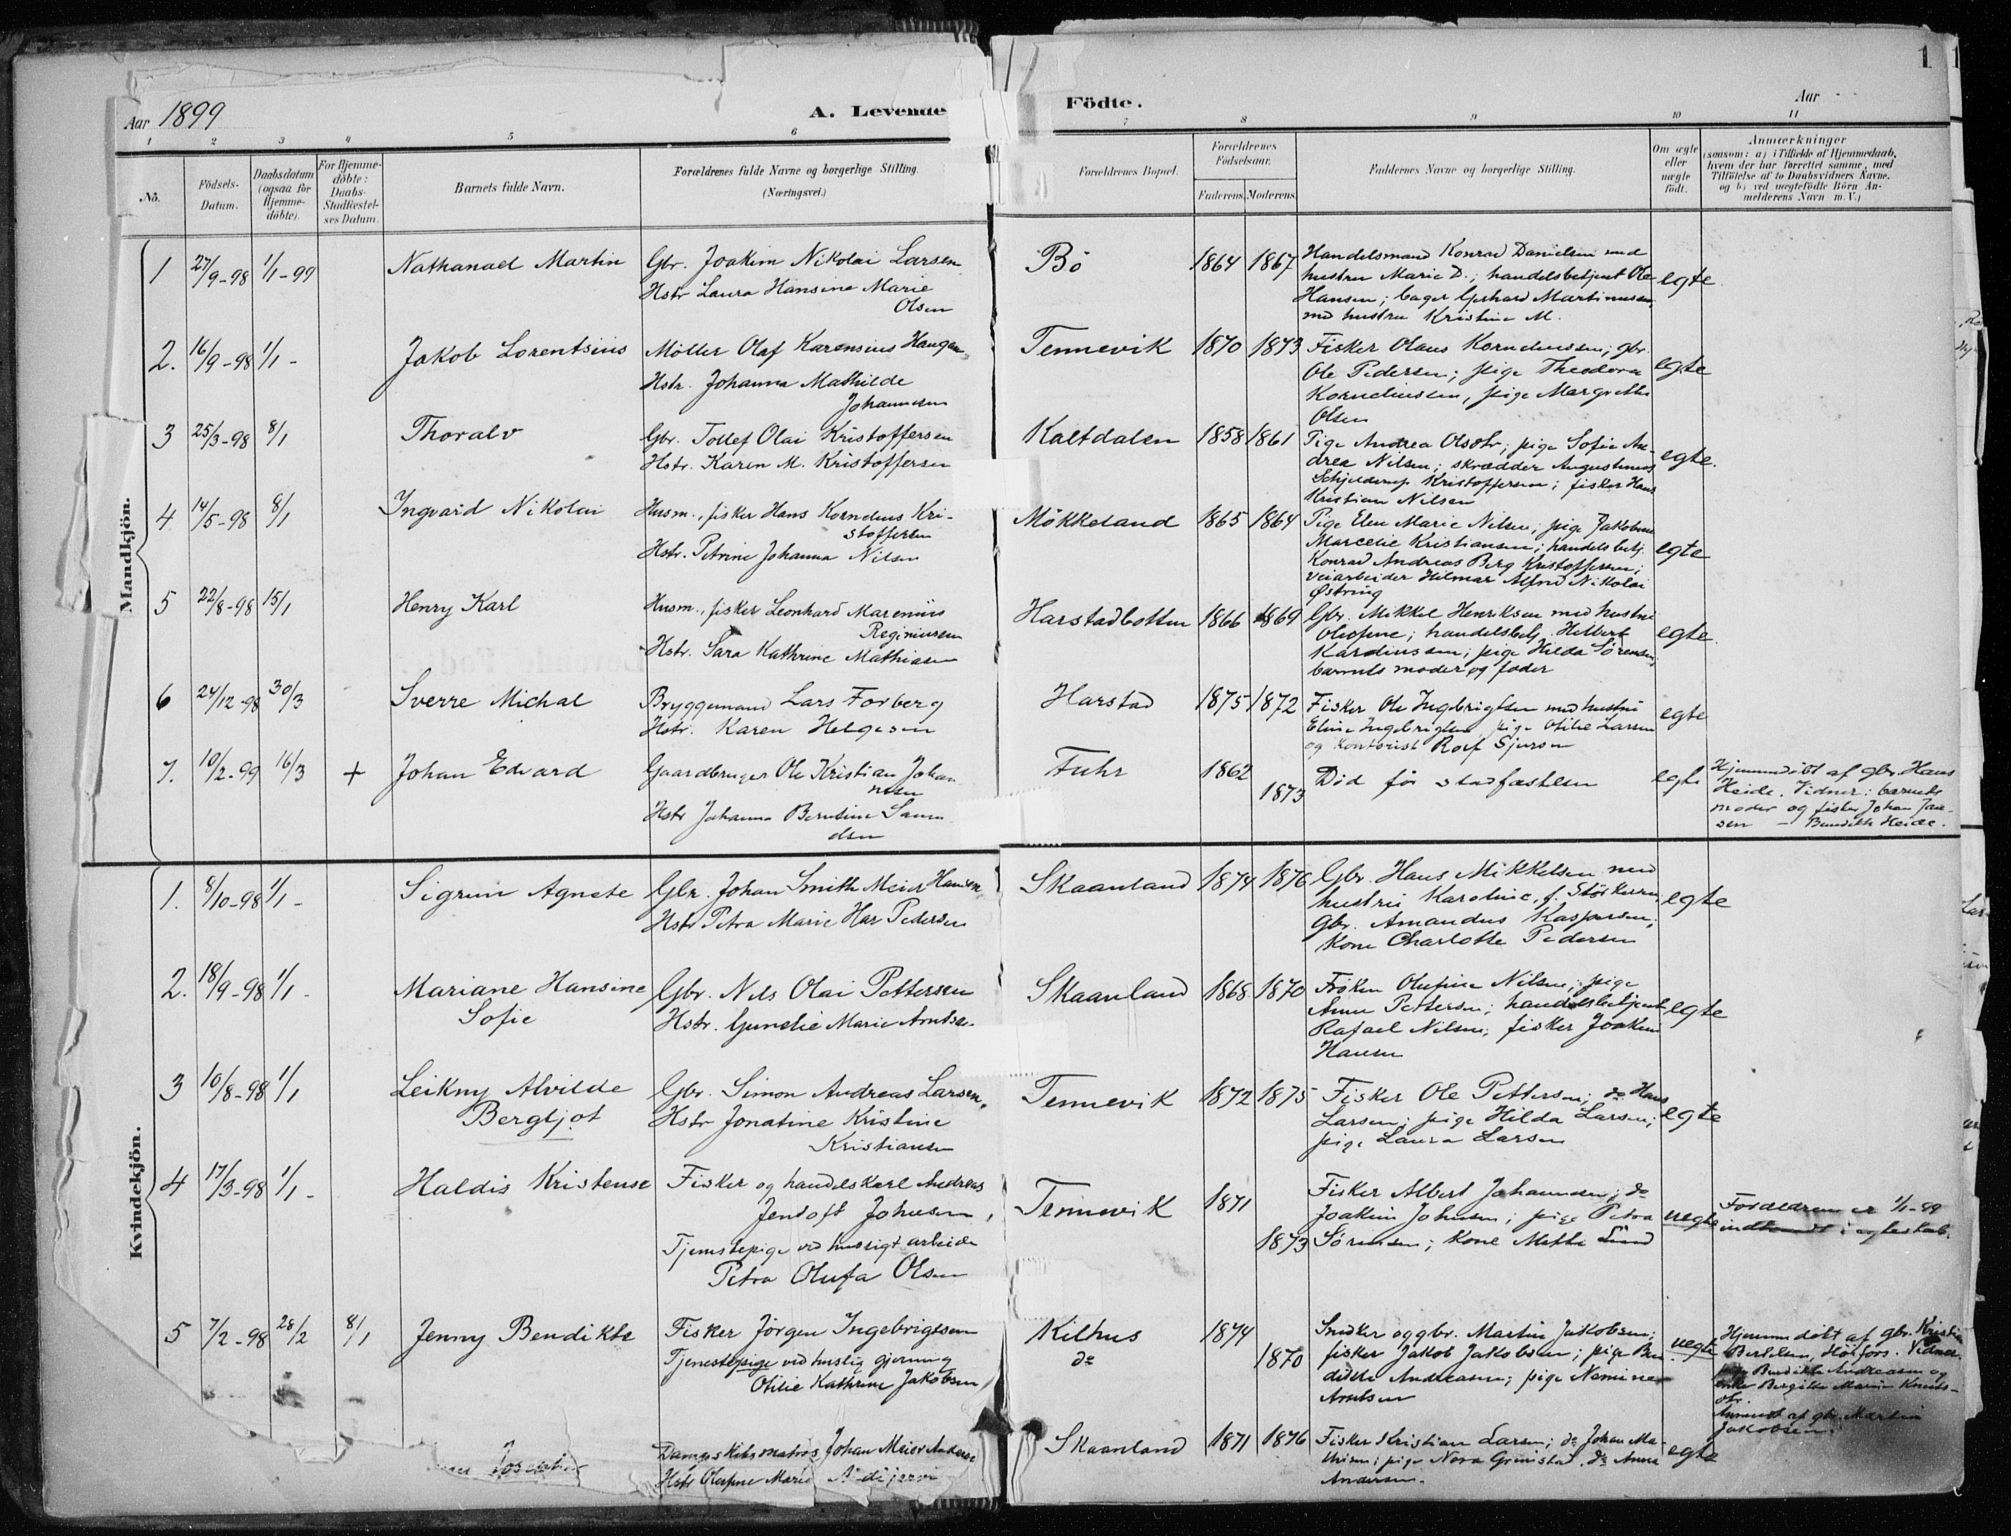 Aar 1899
A. Levende
Födte.
Aar
1
1 2 3 4 5 6 7 8 9 10 11
No.
Födsels-
Datum.
Daabsdatum
(ogsaa for
Hjemme-
döbte).
For Hjemme-
döbte:
Daabs-
Stadfæstel-
ses Datum.
Barnets fulde Navn.
Forældrenes fulde Navne og borgerlige Stilling.
(Næringsvei.)
Forældrenes Bopæl.
Forældrenes
Födselsaar.
Faderens. Moderens.
Faddernes Navne og borgerlige Stilling.
Om ægte
eller
uægte
födt.
Anmærkninger
(saasom: a) i Tilfælde af Hjemmedaab,
hvem der har forrettet samme, med
Tilföielse af to Daabsvidners Navne,
og b) ved uægtefödte Börn An-
melderens Navn m. V.)
Mandkjön.
1 27/9-98 1/1-99 Nathanael Martin
Gbr. Joakim Nikolai Larsen
Hstr Laura Hansine Marie
Olsen
Bö 1864 1867
Handelsmand Konrad Danielsen med
hustru Marie D.; handelsbetjent Ole
Hansen; bager Gerhard Martinusen
med hustru Kristine M.
egte
2. 16/9-98 1/1- Jakob Lorentsius
Møller Olaf Karensius Haugen
Hstr. Johanna Mathilde
Johannesen
Tennevik 1870 1873
Fisker Olaus Korneliussen; gbr.
Ole Pedersen; pige Theodora
Korneliussen, pige Margrethe
Olsen
egte
3 25/3-98 8/1 Thoralv
Gbr. Tollef Olai Kristoffersen
Hstr. Karen M. Kristoffersen
Kaltdalen 1858 1861
Pige Andrea Olsdtr; pige Sofie An-
drea Nilsen; skrædder Augustinus
Schjelderup Kristoffersen; fisker Hans
Kristian Nilsen
egte.
4 14/5-98 8/1 Ingvard Nikolai
Husm., fisker Hans Kornelius Kri-
stoffersen
Hstr. Petrine Johanna Nilsen
Møkkeland 1865 1864
Pige Elen Marie Nilsen; pige Jakobine
Marcelie Kristiansen; handelsbetj.
Konrad Andreas Berg Kristoffersen;
veiarbeider Hilmar Alfred Nikolai
Østring
egte
5 22/8-98 15/1 Henry Karl
Husm., fisker Leonhard Marenius
Reginiusen
Hstr. Sara Kathrine Mathiasen
Harstadbotten 1866 1869
Gbr. Mikkel Henriksen med hustru
Olufine; handelsbetj. Helbert
Kardiussen; pige Hilda Sørensen,
barnets moder og fader
egte.
6 24/12-98 30/3 Sverre Michal
Bryggemand Lars Forberg
Hstr. Karen Helgesen
Harstad 1875 1872
Fisker Ole Ingebrigtsen med hustru
Eline Ingebrigtsen, pige Otilie Larsen
og kontorist Rolf Sjursen
egte
7. 10/2-99 16/3 + Johan Edvard
Gaardbruger Ole Kristian Johan
nesen
Hstr Johanna Berntine Samu
elsen
Fuhr 1862 1873
Död før stadfæstelsen
egte
Hjemmedöbt af gbr. Hans
Heide. Vidner: barnets
moder og fisker Johan Jan-
sen — Benedikte Heide.
Kvindekjön.
1. 8/10-98 1/1- Sigrun Agnete
Gbr. Johan Smith Meier Hansen
Hstr Petra Marie Har Pedersen
Skaanland 1874 1876
Gbr. Hans Mikkelsen med
hustru Karoline, f. Størkersen,
gbr. Amandus Kaspersen;
Kone Charlotte Pedersen
egte
2. 18/9-98 1/1- Mariane Hansine
Sofie
Gbr. Nels Olai Pettersen
Hstr. Gunelie Marie Arntsen
Skaanland 1868 1870
Frøken Olufine Nilsen, pige
Anna Pettersen; handelsbetjent
Rafael Nilsen; fisker Joakim
Hansen
egte
3 10/8-98 1/1 Leikny Alvilde
Bergljot
Gbr. Simon Andreas Larsen,
Hstr Jonatine Kristine
Kristiansen
Tennevik 1872 1875
Fisker Ole Pettersen; do Hans
Larsen; pige Hilda Larsen;
pige Laura Larsen
egte
4 17/3-98 1/1- Haldis Kristense
Fisker og handelskarl Andreas
Jentoft Johnsen,
Tjenestepige ved husligt arbeide
Petra Olufa Olsen
Tennevik 1871 1873
Fisker Albert Johannesen; do
Joakim Johnsen; pige Petra
Sørensen; kone Mette Lind
uegte
Forældrene er 1/1-99
indtraadt i egteskab.
5 7/2-98 28/2 8/1 Jenny Bendikte
Fisker Jørgen Ingebrigtsen
Tjenestepige ved huslig gjerning
Otilie Kathrine Jakobsen
Kilhus
do
1874 1870
Snedker og gbr. Martin Jakobsen;
fisker Jakob Jakobsen; pige Ben
dikte Andreasen; pige Nemine
Arntsen
uegte
Hjemmedöbt af gbr. Kristian
Bertelsen, Høifors. Vidner
Bendikte Andreasen og
enke Bergitte Marie Knuts-
dtr.
Anmeldt af gbr. Martin
Jakobsen.
Dampskibsmatros Johan Meier Anderse
Hstr Olufine Marie
Skaanland 1871 1876
Fisker Kristian Larsen; do Johan Ma-
thisen; pige Nora Grimstad, do Anna
Andersen.
egte